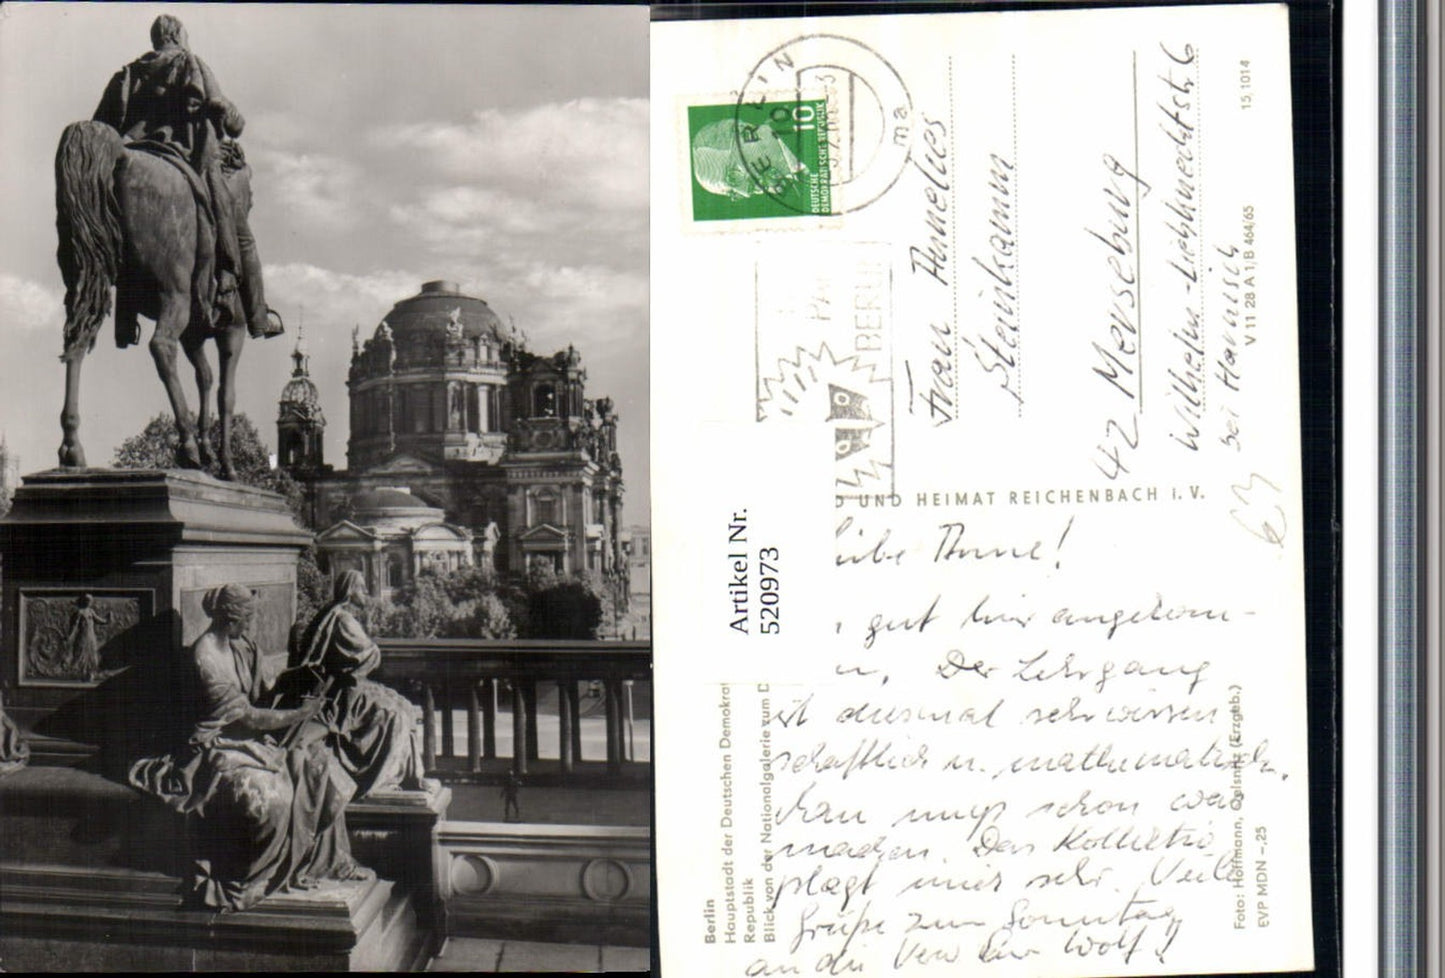 BERLIN
10
ma
10
DEUTSCHE
DEMOKRATISCHE REPUBLIK
BERLIN
Frau Annelies
Steinkamm
42 Merseburg
Wilhelm-Liebknechtstr. 6
bei Harnisch
15 1014
V 11 28 A 1/B 464/65
D UND HEIMAT REICHENBACH i. V.
63
Artikel Nr.
520973
iebe Anne!
gut hier angekom-
n. Der Lehrgang
ist diesmal sehr wissen
schaftlich u. mathematisch.
Man muß schon was
machen. Das Kollektiv
plagt mich sehr. Viele
Grüße zum Sonntag
an die Wolf!
Berlin
Hauptstadt der Deutschen Demokra
Republik
Blick von der Nationalgalerie zum D
Foto: Hoffmann, Oelsnitz (Erzgeb.)
EVP MDN -,25